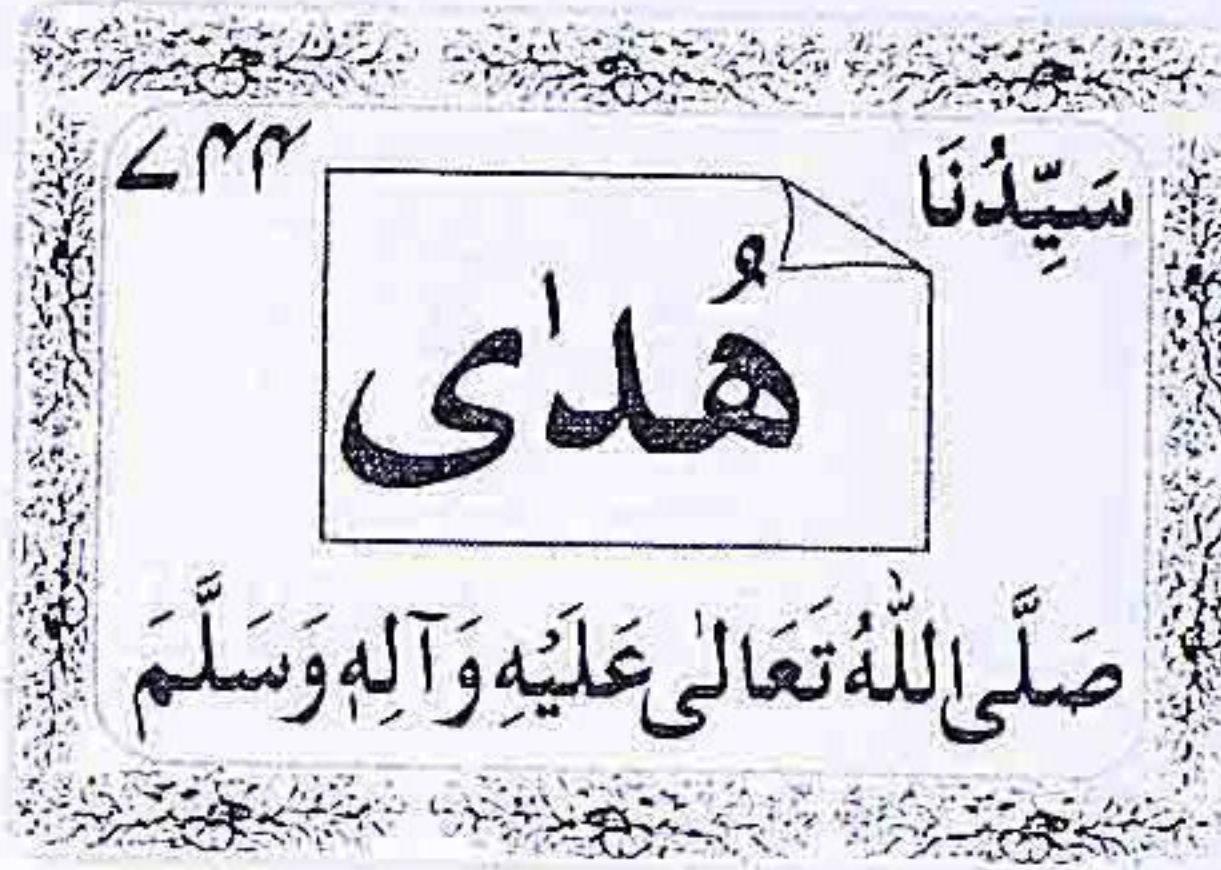 سَيِّدُنَا ۷۴۴
هُدٰى
صَلَّى اللّٰهُ تَعَالٰى عَلَيْهِ وَآلِهٖ وَسَلَّمَ